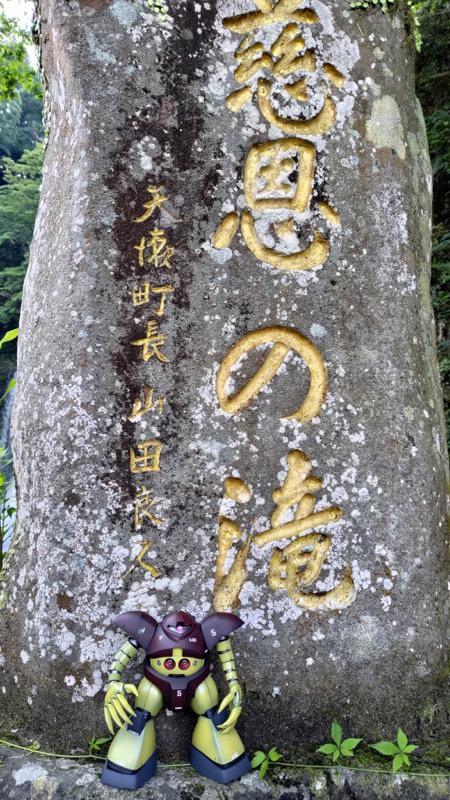 慈恩の滝
天瀬町長 山田良久
5
5